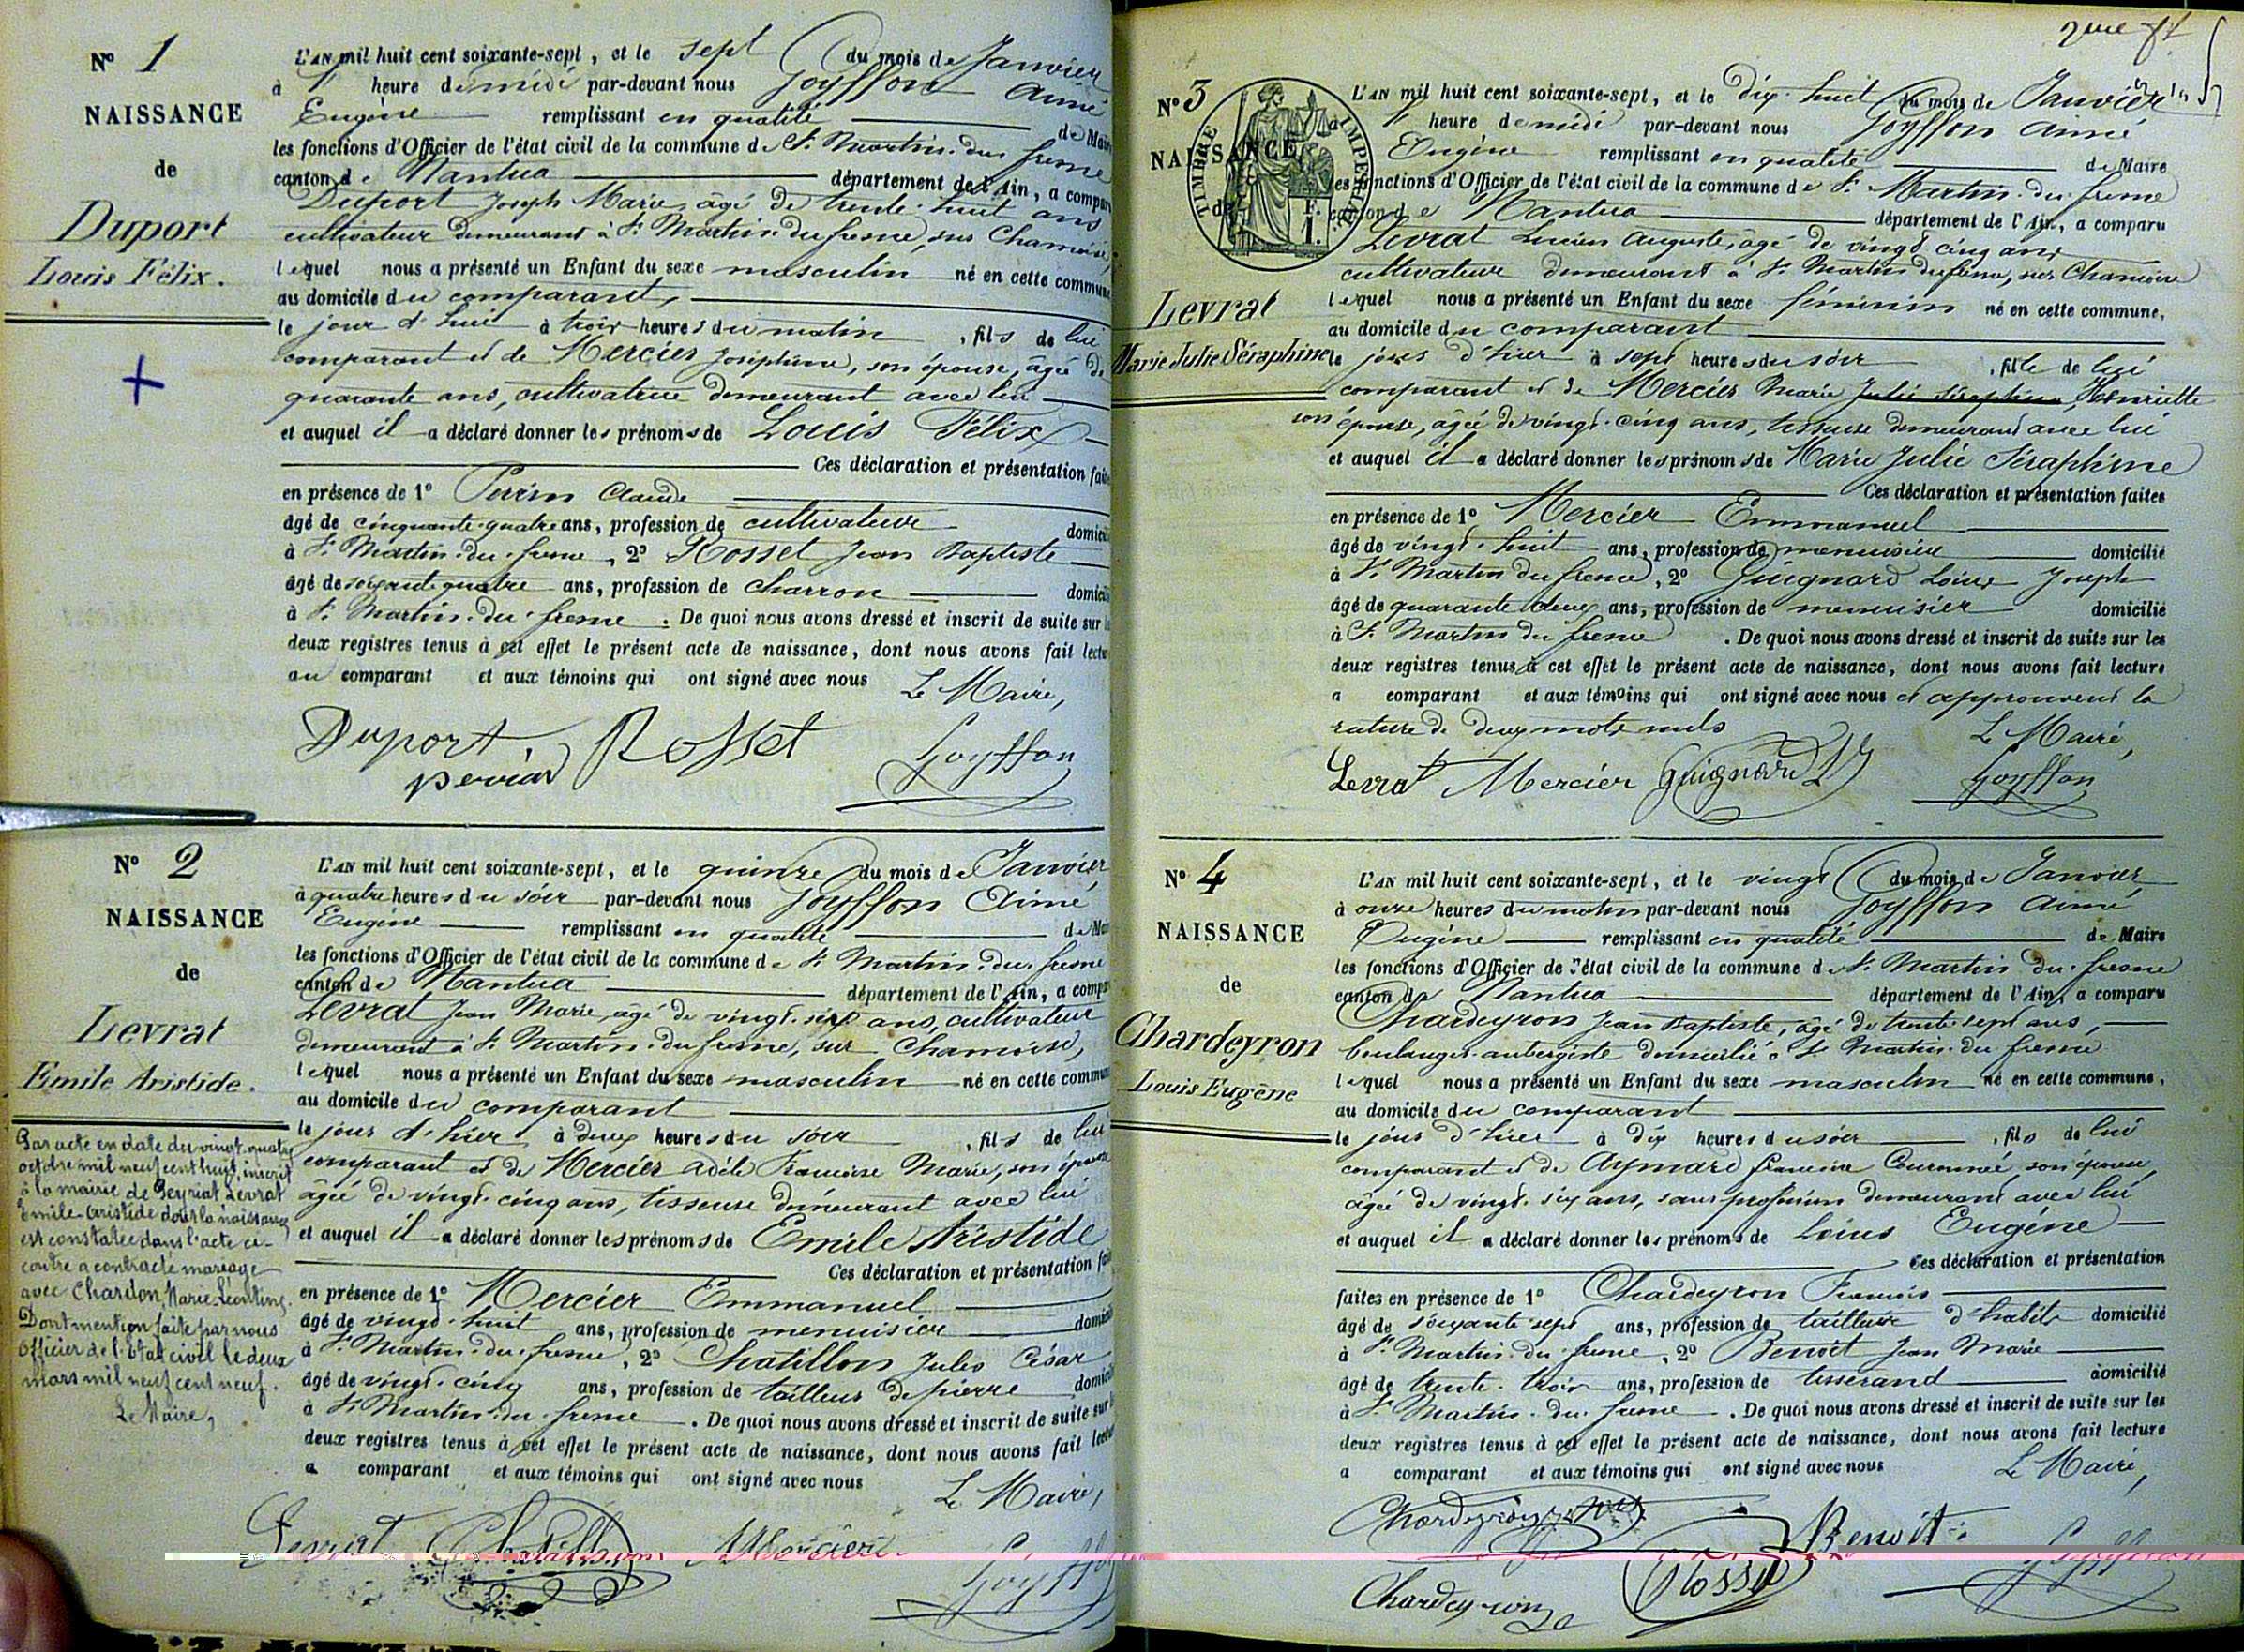 N° 1
NAISSANCE
de
Duport
Louis Félix.
L'AN mil huit cent soixante-sept, et le sept du mois de Janvier
à 1 heure de midi par-devant nous Goyffon Aimé
Eugène remplissant en qualité de Mair
les fonctions d'Officier de l'état civil de la commune de St Martin-du-fresne
canton de Nantua département de l'Ain, a compar
Duport Joseph Marie, âgé de trente-huit ans
cultivateur demeurant à St Martin-du-fresne, sur Chamoise,
lequel nous a présenté un Enfant du sexe masculin né en cette commune
au domicile du comparant,
le jour d'hui à trois heures du matin, fils de lui
comparant et de Mercier Joséphine, son épouse, âgée de
quarante ans, cultivatrice demeurant avec lui
et auquel il a déclaré donner les prénoms de Louis Félix
Ces déclaration et présentation fait
en présence de 1° Perrin Claude
âgé de cinquante-quatre ans, profession de cultivateur domicili
à St Martin-du-fresne, 2° Rosset Jean Baptiste
âgé de soixante quatre ans, profession de charron domicili
à St Martin-du-fresne. De quoi nous avons dressé et inscrit de suite sur l
deux registres tenus à cet effet le présent acte de naissance, dont nous avons fait lectu
au comparant et aux témoins qui ont signé avec nous Le Maire,
Duport. Rosset Goyffon
perrin
N° 2
NAISSANCE
de
Levrat
Emile Aristide.
Par acte en date du vingt-quatre
octobre mil neuf cent huit, inscrit
à la mairie de Peyriat Levrat
Emile-Aristide dont la naissance
est constatée dans l'acte ci-
contre a contracté mariage
avec Chardon, Marie-Léontine.
Dont mention faite par nous
Officier de l'Etat civil le deux
mars mil neuf cent neuf.
Le Maire,
L'AN mil huit cent soixante-sept, et le quinze du mois de Janvier
à quatre heures du soir par-devant nous Goyffon Aimé
Eugène remplissant en qualité de Mai
les fonctions d'Officier de l'état civil de la commune de St Martin-du-fresne
canton de Nantua département de l'Ain, a compa
Levrat Jean Marie, âgé de vingt-sept ans, cultivateur
demeurant à St Martin-du-fresne, sur Chamoise,
lequel nous a présenté un Enfant du sexe masculin né en cette commun
au domicile du comparant
le jour d'hier à deux heures du soir, fils de lui
comparant et de Mercier Adèle Françoise Marie, son épouse
âgée de vingt-cinq ans, tisseuse demeurant avec lui
et auquel il a déclaré donner les prénoms de Emile Aristide
Ces déclaration et présentation fai
en présence de 1° Mercier Emmanuel
âgé de vingt-huit ans, profession de menuisier domici
à St Martin-du-fresne, 2° Chatillon Jules César
âgé de vingt-cinq ans, profession de tailleur de pierre domici
à St Martin-du-fresne. De quoi nous avons dressé et inscrit de suite sur l
deux registres tenus à cet effet le présent acte de naissance, dont nous avons fait lectu
a comparant et aux témoins qui ont signé avec nous
Le Maire,
Levrat Chatillon Mercier Goyffon
2me ft
N° 3
NAISSANCE
de
TIMBRE IMPERIAL
1 F.
Levrat
Marie Julie Séraphine
L'AN mil huit cent soixante-sept, et le dix-huit du mois de Janvier
à 1 heure de midi par-devant nous Goyffon Aimé
Eugène remplissant en qualité de Maire
les fonctions d'Officier de l'état civil de la commune de St Martin-du-fresne
canton de Nantua département de l'Ain, a comparu
Levrat Lucien Auguste, âgé de vingt cinq ans
cultivateur demeurant à St Martin du fresne, sur Chamoise
lequel nous a présenté un Enfant du sexe féminin né en cette commune,
au domicile du comparant
le jour d'hier à sept heures du soir, fille de lui
comparant et de Mercier Marie Julie Séraphine, Henriette
son épouse, âgée de vingt-cinq ans, tisseuse demeurant avec lui
et auquel il a déclaré donner les prénoms de Marie Julie Séraphine
Ces déclaration et présentation faites
en présence de 1° Mercier Emmanuel
âgé de vingt-huit ans, profession de menuisier domicilié
à St Martin du fresne, 2° Guignard Louis Joseph
âgé de quarante deux ans, profession de menuisier domicilié
à St Martin du fresne. De quoi nous avons dressé et inscrit de suite sur les
deux registres tenus à cet effet le présent acte de naissance, dont nous avons fait lecture
a comparant et aux témoins qui ont signé avec nous et approuvent la
rature de deux mots nuls Le Maire,
Levrat Mercier Guignard Goyffon
N° 4
NAISSANCE
de
Chardeyron
Louis Eugène
L'AN mil huit cent soixante-sept, et le vingt du mois de Janvier
à onze heures du matin par-devant nous Goyffon Aimé
Eugène remplissant en qualité de Maire
les fonctions d'Officier de l'état civil de la commune de St Martin du fresne
canton de Nantua département de l'Ain, a comparu
Chardeyron Jean Baptiste, âgé de trente-sept ans,
boulanger-aubergiste domicilié à St Martin-du-fresne
lequel nous a présenté un Enfant du sexe masculin né en cette commune,
au domicile du comparant
le jour d'hier à dix heures du soir, fils de lui
comparant et de Aymard Francine Couronnée son épouse,
âgée de vingt-six ans, sans profession demeurant avec lui
et auquel il a déclaré donner les prénoms de Louis Eugène
Ces déclaration et présentation
faites en présence de 1° Chardeyron François
âgé de soixante sept ans, profession de tailleur d'habits domicilié
à St Martin-du-fresne, 2° Benoît Jean Marie
âgé de trente-trois ans, profession de tisserand domicilié
à St Martin-du-fresne. De quoi nous avons dressé et inscrit de suite sur les
deux registres tenus à cet effet le présent acte de naissance, dont nous avons fait lecture
a comparant et aux témoins qui ont signé avec nous Le Maire,
Chardeyron Benoit Goyffon
Chardeyron